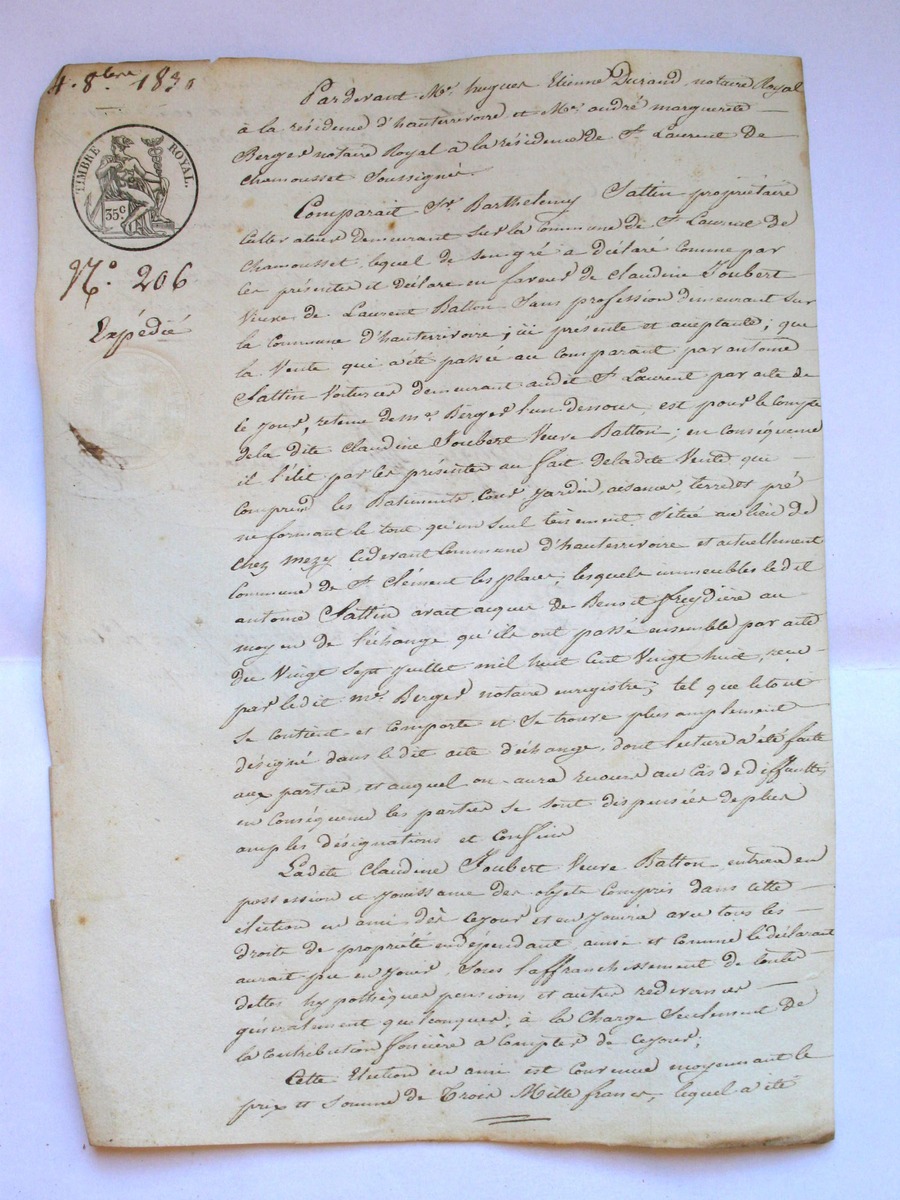 4. 8bre. 1830
TIMBRE ROYAL.
35c
No. 206
Expédié
Pardevant Me. hugues Etienne Durand, notaire Royal
à la résidence d'hauterivoire et Me. andré marguerite
Berger notaire Royal à la résidence de St. Laurent de
Chamousset Soussignés.
Comparait Sr. Barthelemy Sattin propriétaire
Cultivateur demeurant sur la Commune de St Laurent de
Chamousset, lequel de son gré a déclaré comme par
ces présentes il déclare en faveur de Claudine Joubert
Veuve de Laurent Batton Sans profession demeurant sur
la Commune d'hauterivoire, ici présente et acceptante; que
la Vente qui a été passée au Comparant par antoine
Sattin Voiturier demeurant audit St Laurent par acte de
ce jour, retenu de me. Berger l'un dessous, est pour le Compte
de la dite Claudine Joubert Veuve Batton; en Conséquence
il l'élit par les présentes au fait de ladite Vente qui
comprend les Batiments, Cour, jardin, aisances, terre et pré
ne formant le tout qu'un seul tènement, situé au lieu de
Chez meze Cidevant Commune d'hauterrivoire et actuellement
Commune de St. Clément les places, lesquels immeubles le dit
antoine Sattin avait acquis de Benoit au
moyen de l'échange qu'ils ont passé ensemble par acte
du Vingt Sept juillet mil huit Cent Vingt huit, reçu
par ledit me. Berger notaire enregistré; tel que le tout
se contient et comporte et se trouve plus amplement
désigné dans ledit acte d'échange, dont lecture a été faite
aux parties, et auquel on aura recours au Cas de difficultés,
en Conséquence les parties se sont dispensées de plus
amples désignations et Confins
Ladite Claudine Joubert Veuve Batton, entrera en
possession et jouissance des objets Compris dans cette
élection en ami dès cejour et en jouira avec tous les
droits de propriété en dépendant, ainsi et comme le déclarant
aurait pu en jouir, Sous l'affranchissement de toutes
dettes hypothèques pensions et autres redevances
généralement quelconques, à la Charge Seulement de
la Contribution foncière a Compter de cejour;
Cette Election en ami est Convenue moyennant le
prix et somme de Trois Mille francs, lequel a été